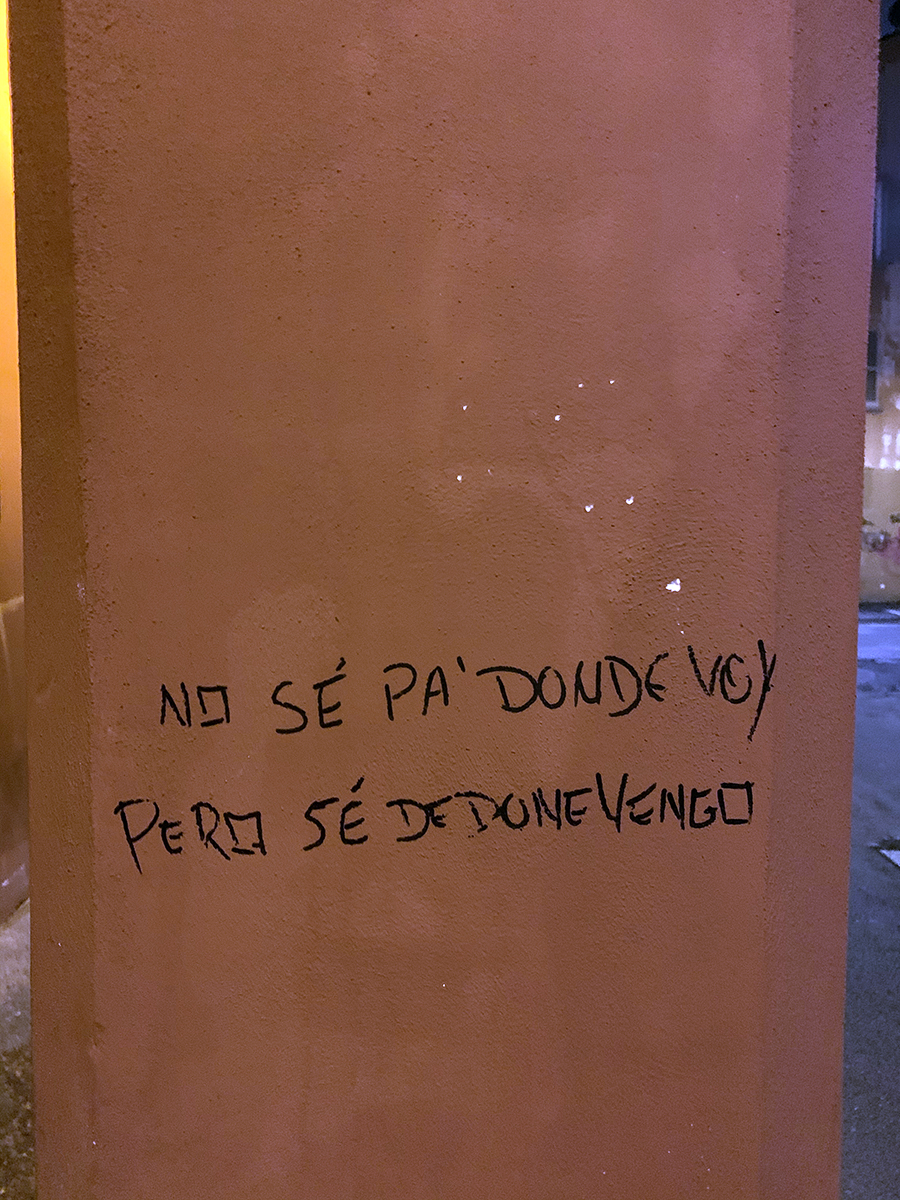 NO SÉ PA' DONDE VOY
PERO SÉ DE DONE VENGO